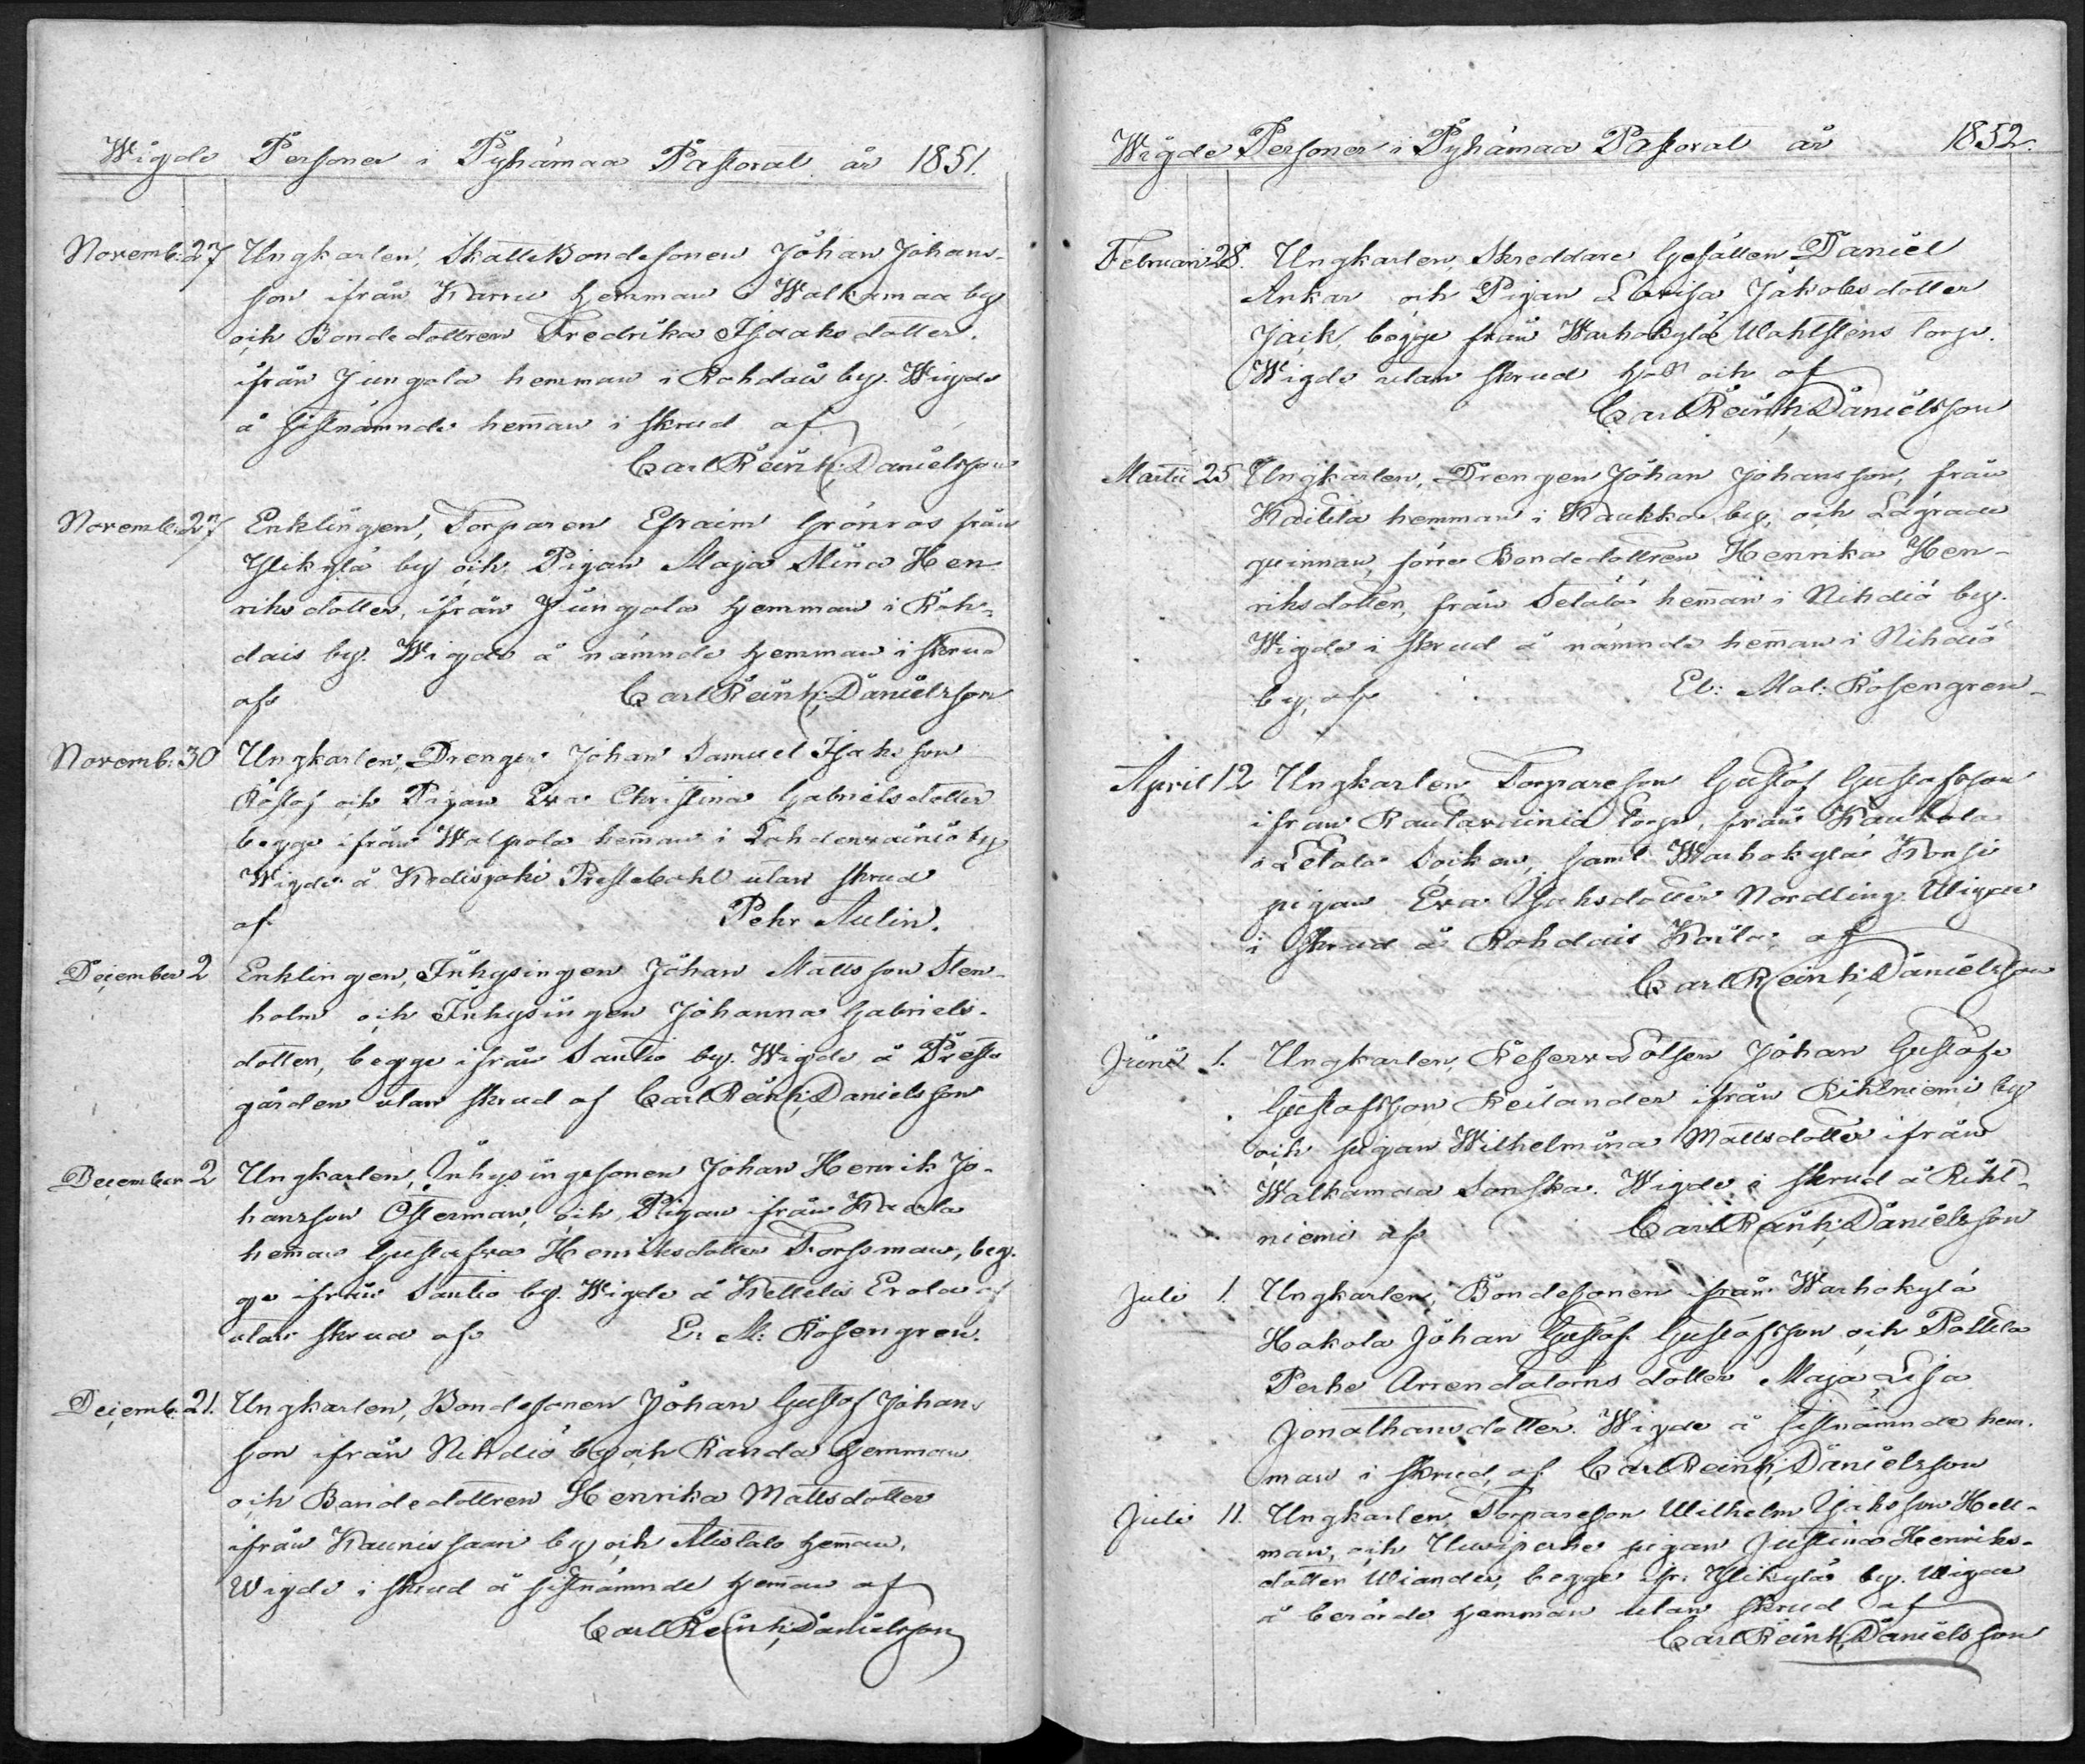 Wigde Personer i Pyhämaa Pastorat år 1851.
Novemb: 27 Ungkarlen, SkatteBondesonen Johan Johans-
son ifrån Karru hemman i Walkamaa by
och Bondedottren Fredrika Isaaksdotter.
ifrån Jungola hemman i Rohdais by. Wigde
å sistnämnde hem̄an i skrud af
Carl Reinh: Danielsson
Novemb: 27 Enklingen, Torparen Efraim Grönros från
Ylikylä by och Pigan Maja Stina Hen-
riksdotter, ifrån Jungola hemman i Roh-
dais by. Wigde å nämnde hemman i skrud
af Carl Reinh: Danielsson
Novemb: 30 Ungkarlen, Drengen Johan Samuel Isaksson
Rostof och Pigan Eva Christina Gabrielsdotter
begge ifrån Walpola hem̄an i Lahdenwainio by
Wigde å Kodisjoki Prestebohl utan skrud
af Pehr Aulin.
December 2 Enklingen, Inhysingen Johan Mattsson Sten-
holm och Inhysingen Johanna Gabriels-
dotter, begge ifrån Santio by. Wigde å Preste
gården utan skrud af Carl Reinh: Danielsson
December 2 Ungkarlen, Inhysingesonen Johan Henrik Jo-
hansson Österman, och Pigan ifrån Kaarla
hem̄an Gustafva Henriksdotter Forssman, beg-
ge ifrån Santio by. Wigde å Kettelis Erola
utan skrud af E: M: Rosengren.
Decemb: 21. Ungkarlen, Bondesonen Johan Gustaf Johans
son ifrån Nihdiö by och Randa hemman
och Bondedottren Henrika Mattsdotter
ifrån Kaunissaari by och Alistalo hem̄an.
Wigde i skrud å sistnämnde hem̄an af
Carl Reinh: Danielsson
Wigde Personer i Pyhämaa Pastorat år 1852.
Februari 28. Ungkarlen, Skreddare Gesällen Daniel
Ankar och Pigan Lovisa Jakobsdotter
Jaik, begge från Warhokylä Wahlstens torp.
Wigde utan skrud hos och af
Carl Reinh: Danielsson
Martii 25 Ungkarlen, Drengen Johan Johansson, från
Kaitila hemman i Kaukka by, och Lägrade
quinnan, förre Bondedottren Henrika Hen-
riksdotter, från Setälä hem̄an i Nihdiö by.
Wigde i skrud å nämnde hem̄an i Nihdiö
by, af El: Mat: Rosengren
April 12 Ungkarlen, Torpareson Gustaf Gustafsson
ifrån Rautavainia torp, från Kaukola
i Letala Socken, samt Warhokylä Konsi
pigan Eva Isaksdotter Nordling. Wigde
i skrud å Rohdais Kaila, af
Carl Reinh: Danielsson
Junii 1. Ungkarlen, Reserv Lotsen Johan Gustaf
Gustafsson Reilander ifrån Rihtniemi by
och pigan Wilhelmina Mattsdotter ifrån
Walkamaa Sonska. Wigde i skrud å Riht-
niemi af Carl Reinh: Danielsson
Juli 1. Ungkarlen, Bondesonen ifrån Warhokylä
Hakola Johan Gustaf Gustafsson och Pattila
Perhe Arrendatorns dotter Maja Lisa
Jonathansdotter. Wigde å sistnämnde hem-
man i skrud, af Carl Reinh: Danielsson
Juli 11. Ungkarlen, Torpareson Wilhelm Isaksson Hell-
man, och Uusiperhe pigan Justina Henriks-
dotter Wiander, begge ifr. Ylikylä by. Wigde
å berörde hemman utan skrud af
Carl Reinh: Danielsson